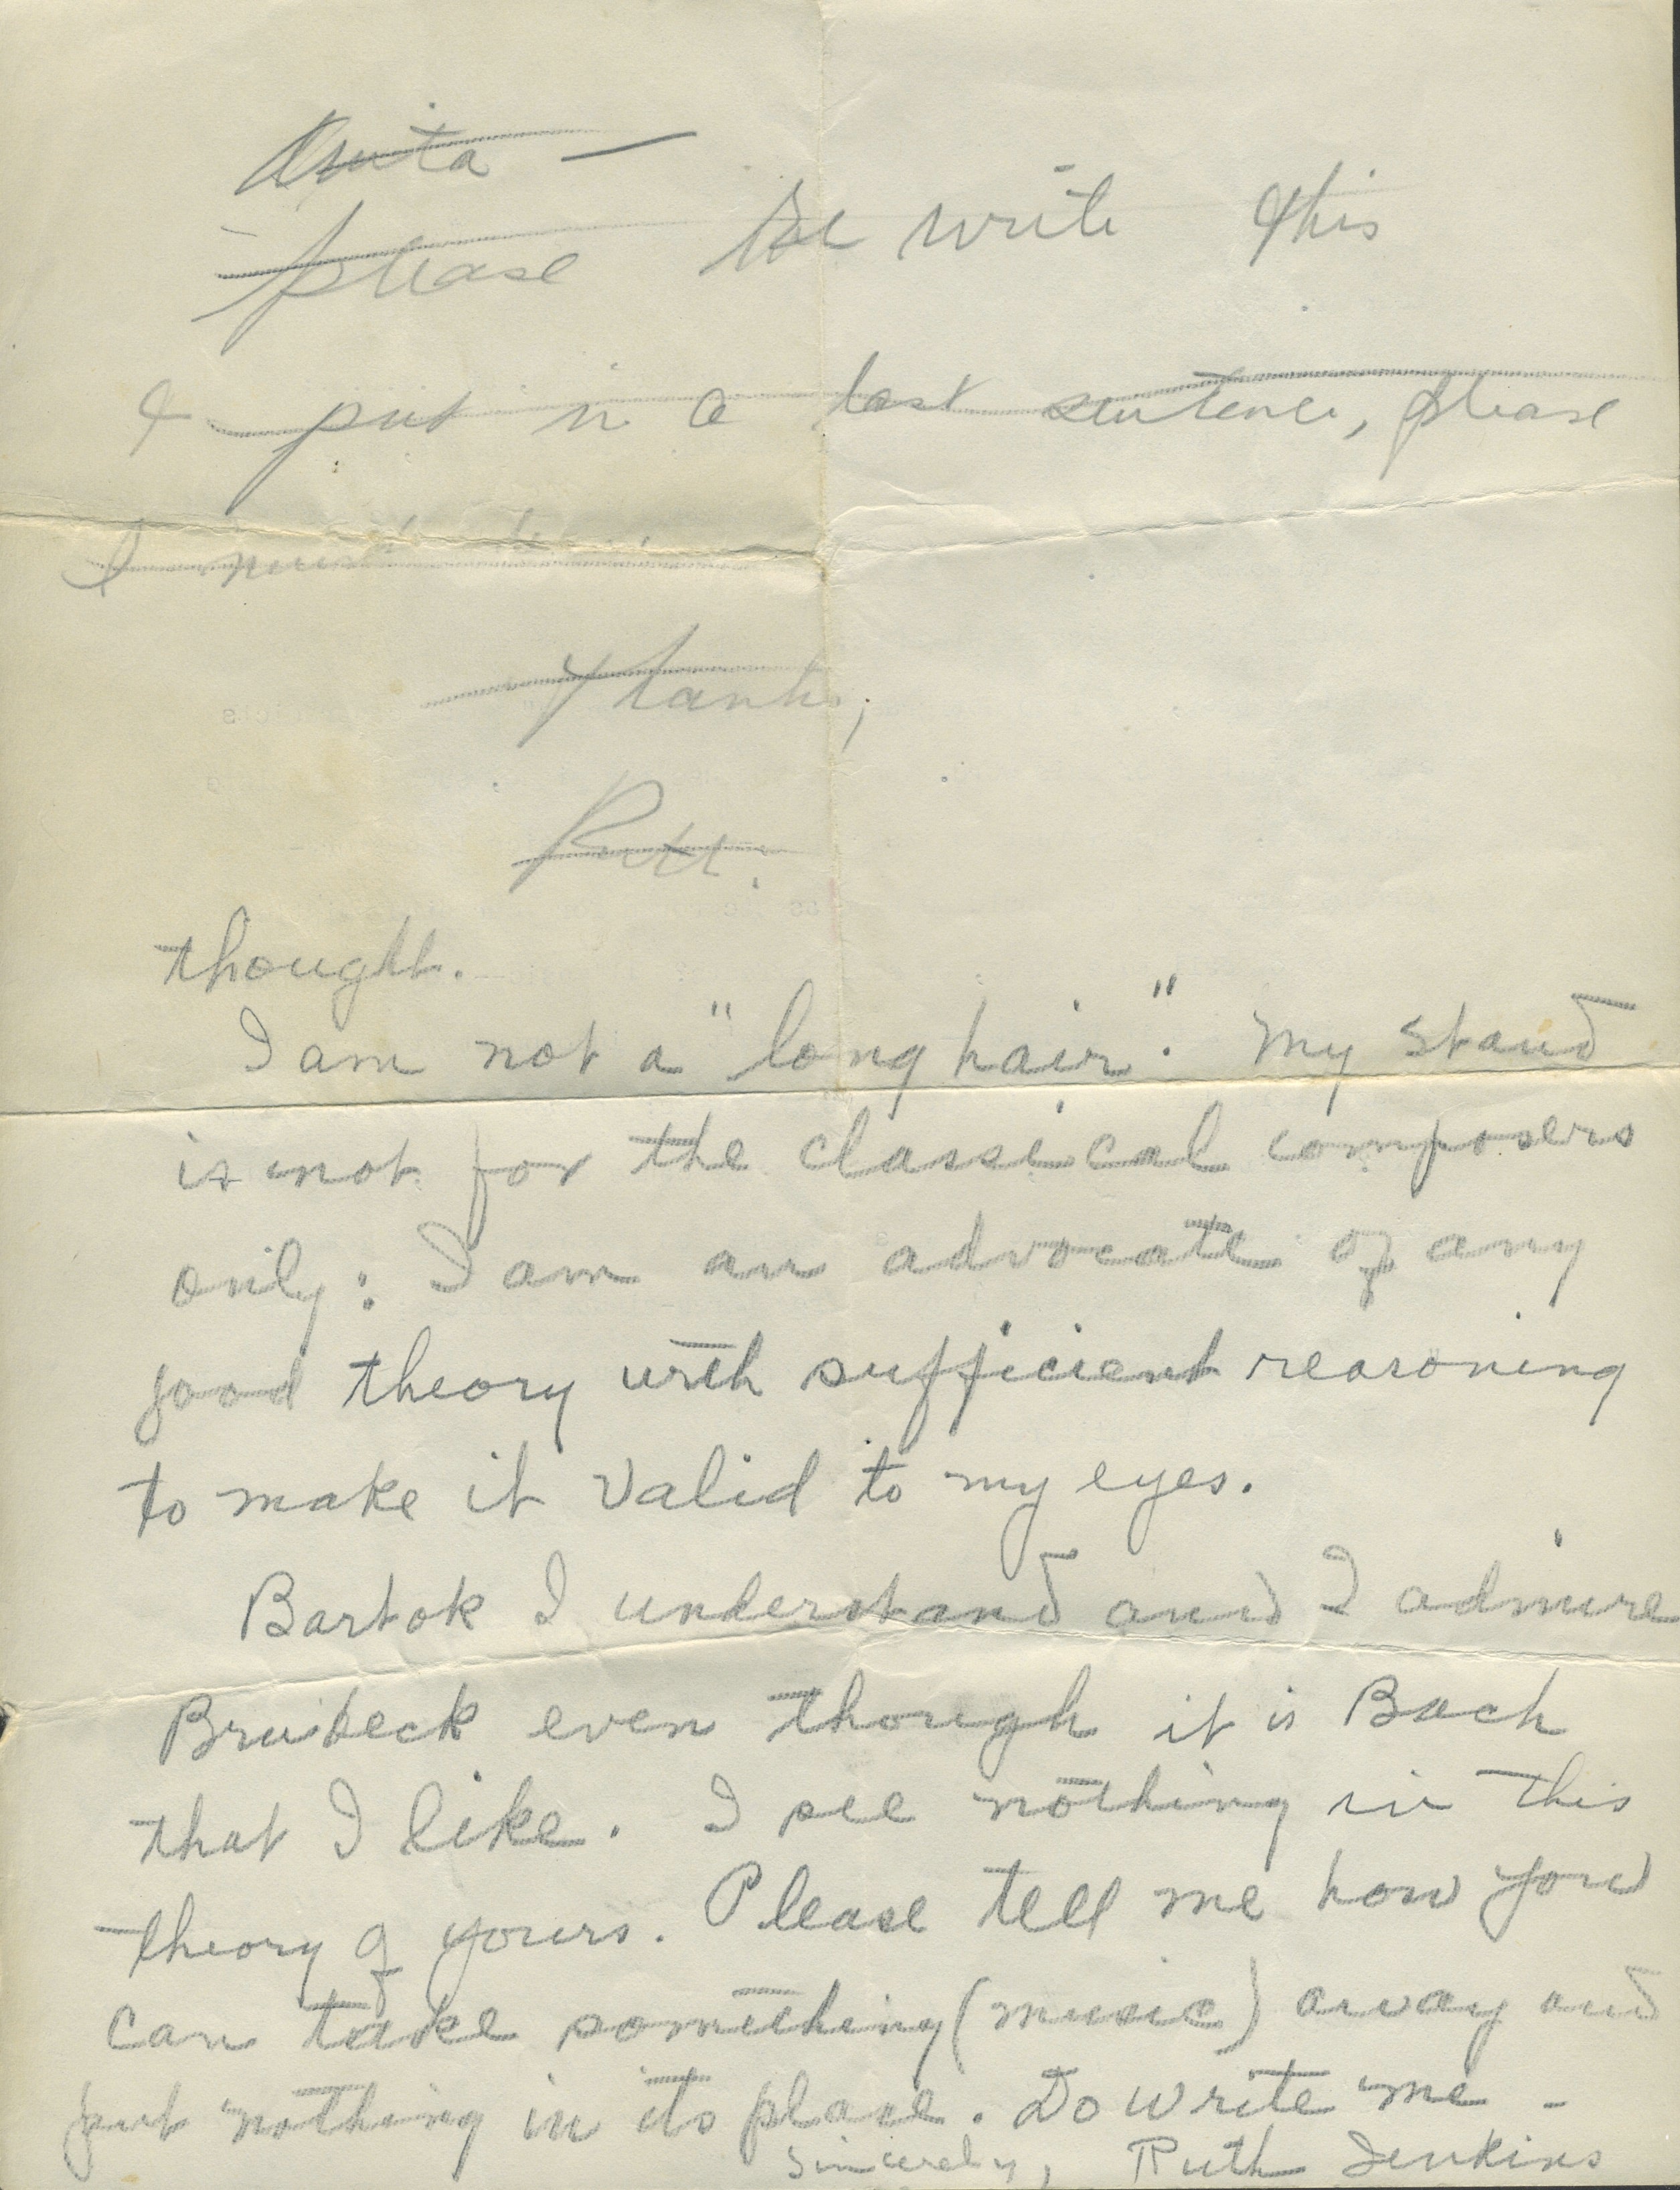 Anita —
please Re write this
& put in a last sentence, please
I must
Thanks,
Ruth.
thought.
I am not a "long hair". My stand
is not for the classical composers
only: I am an advocate of any
good theory with sufficient reasoning
to make it valid to my eyes.
Bartok I understand and I admire
Brubeck even though it is Bach
that I like. I see nothing in this
theory of yours. Please tell me how you
can take something (music) away and
put nothing in its place. Do write me -
Sincerely, Ruth Jenkins